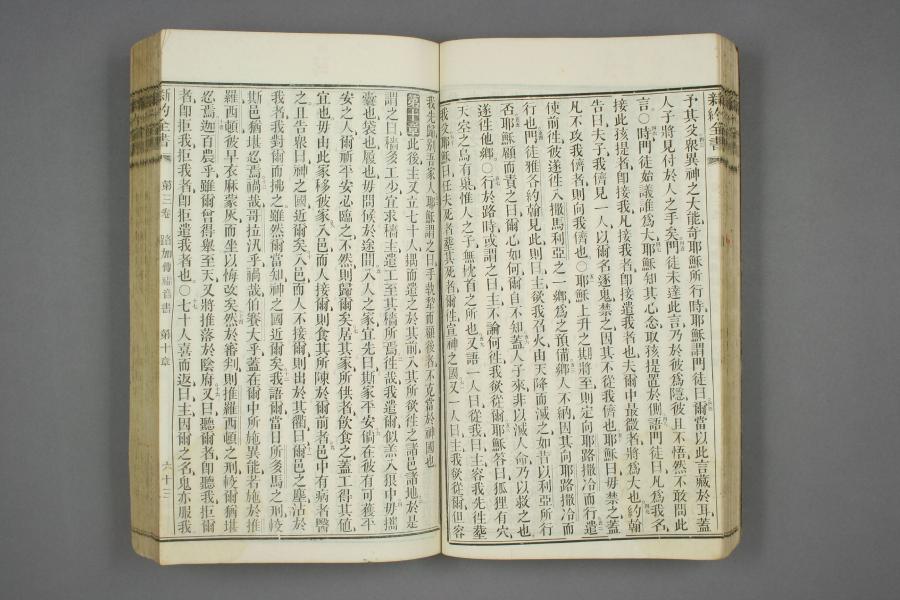 新約全書
予其交眾異神之大能奇耶穌所行時耶穌謂門徒曰爾當以此言藏於耳蓋
人子將見付於人之手矣門徒未達此言乃於彼為隱彼且不悟然不敢問此
言〇時門徒始議誰為大耶穌知其心念取孩提置於側語門徒曰凡為我名
接此孩提者即接我凡接我者即接遣我者也夫爾中最微者將為大也約翰
告曰夫子我儕見一人以爾名逐鬼禁之因其不從我儕也耶穌曰毋禁之蓋
凡不攻我儕者則向我儕也〇耶穌上升之期將至則定向耶路撒冷而行遣
使前往彼遂往入撒馬利亞之一鄉為之預備鄉人不納因其向耶路撒冷而
行也門徒雅各約翰見此則曰主欲我召火由天降而滅之如昔以利亞所行
否耶穌顧而責之曰爾心如何爾自不知蓋人子來非以滅人命乃以救之也
遂往他鄉〇行於路時或謂之曰主不論何往我欲從爾耶穌答曰狐狸有穴
天空之鳥有巢惟人之子無枕首之所也又語一人曰從我曰主容我先往葬
我父耶穌曰任夫死者葬其死者爾往宣神之國又一人曰主我欲從爾但容
我先歸別吾家人耶穌謂之曰手執犂而顧後者不克當於神國也
第十章此後主又立七十人耦而遣之於其前入其所欲往之諸邑諸地於是
謂之曰穡多工少宜求穡主遣工至其穡所焉往哉我遣爾似羔入狼中毋攜
囊也袋也履也毋問候於途間入人之家宜先曰斯家平安倘在彼有可獲平
安之人爾祈平安必臨之不然則歸爾矣居其家所供者飲食之蓋工得其值
宜也毋由此家移彼家入邑而人接爾則食其所陳於爾前者邑中有病者醫
之且告眾曰神之國近爾矣入邑而人不接爾則出於其衢曰爾邑之塵沾於
我者我對爾而拂之雖然爾當知神之國近爾矣我語爾當日所多馬之刑較
斯邑猶堪忍焉禍哉哥拉汛乎禍哉伯賽大乎蓋在爾中所施異能者施於推
羅西頓彼早衣麻蒙灰而坐以悔改矣然於審判則推羅西頓之刑較爾猶堪
忍焉迦百農乎雖爾曾得舉至天又將推落於陰府又曰聽爾者即聽我拒爾
者即拒我拒我者即拒遣我者也〇七十人喜而返曰主因爾之名鬼亦服我
新約全書 第三卷 路加傳福音書 第十章 六十三